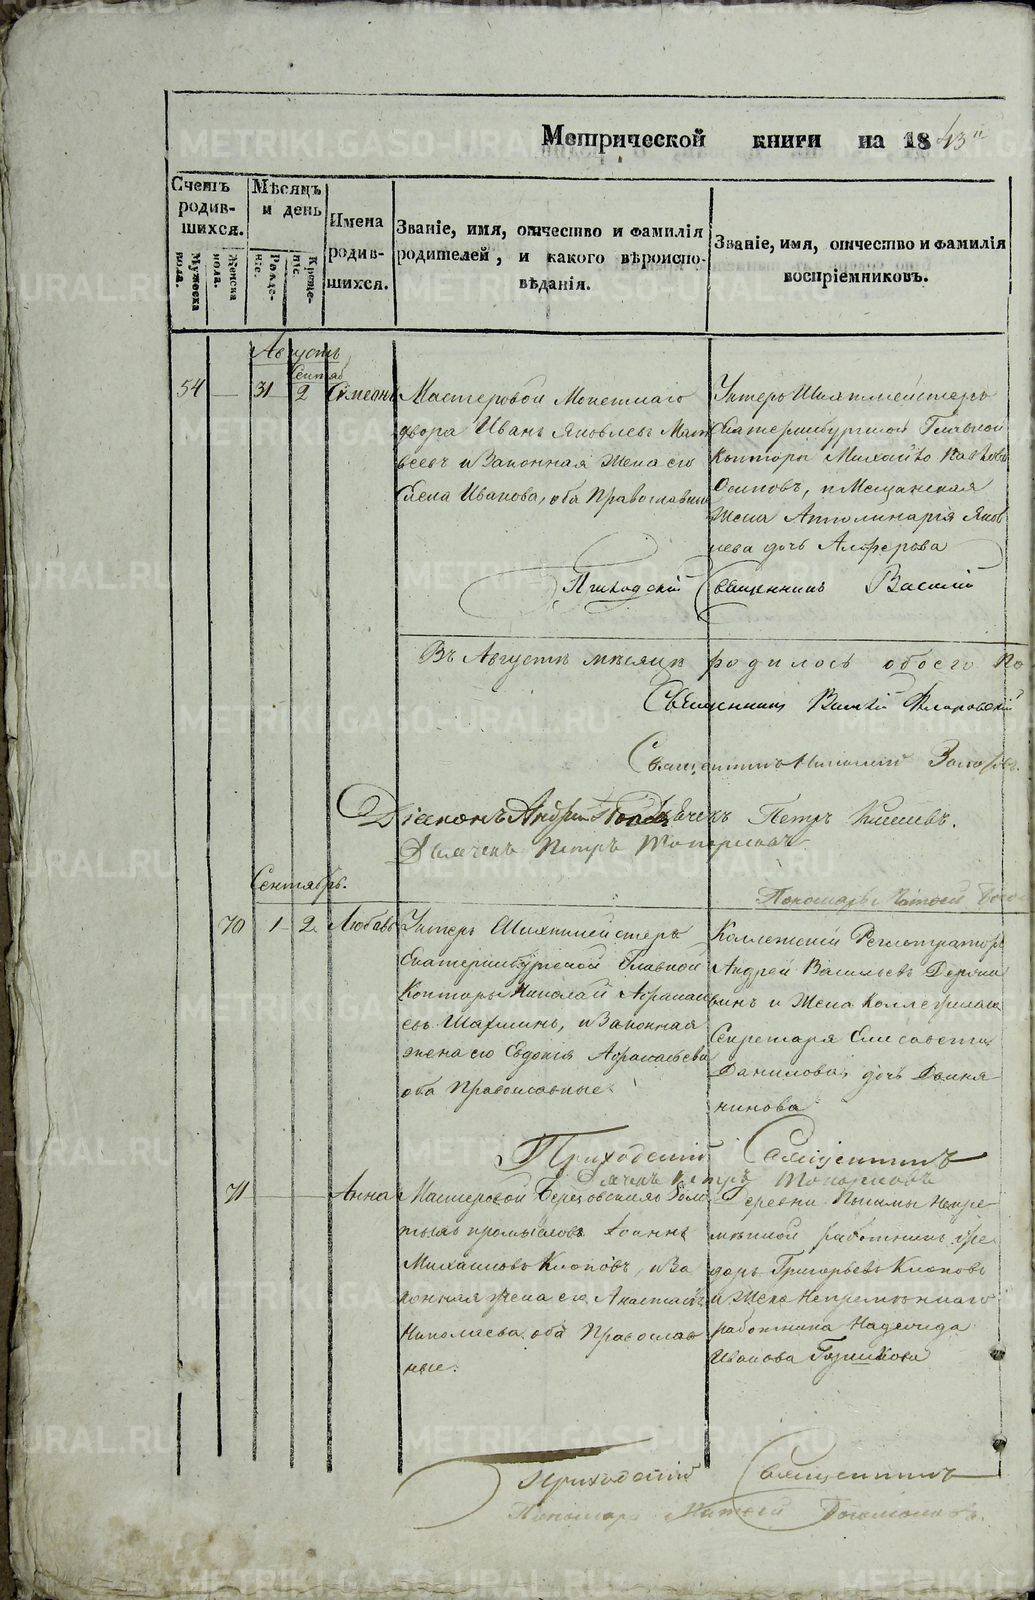 Метрической книги на 1843
Счетъ родив-шихся.
Мужеска пола.
Женска пола.
Мѣсяцъ и день
Рожде-ніе.
Креще-ніе.
Имена родив-шихся.
Званіе, имя, отчество и фамилія
родителей, и какого вѣроиспо-
вѣданія.
Званіе, имя, отчество и фамилія
воспріемниковъ.
Августъ
Сентяб
54 31 2 Сѵмеонъ
Мастеровой Монетнаго
двора Иванъ Яковлевъ Мат
веевъ и Законная Жена его
Елена Иванова, оба Православные
Унтеръ Шихтмейстеръ
Екатеринбургской Главной
Конторы Михайло
Осиповъ, и Мещанская
Жена Апполинарія Яков
лева дочь Алферова
Приходскій Священникъ Василій
Въ Августѣ мѣсяцѣ родилось обоего по
Священникъ
Священникъ Николай
Діаконъ Андрей
Дьячекъ Петръ
Дьячекъ Петръ Топорковъ
Сентябрь.
Пономарь Матѳей Бого
70 1 2 Любовь
Унтеръ Шихтмейстеръ
Екатеринбургской Главной
Конторы Николай Афанась
евъ Шахминъ, и Законная
жена его Евдокія Афанасьева
оба Православные.
Коллежскій Регистраторъ
Андрей Васильевъ
и Жена Коллежскаго
Секретаря Елисавета
Данилова дочь
Приходскій Священникъ
Дьячекъ Петръ Топорковъ
71 Анна
Мастеровой Березовскихъ Золо
тыхъ промысловъ Іоаннъ
Михаиловъ Клоповъ, и За
конная жена его Анастасія
Николаева оба Православ
ные.
Деревни Непре
мѣнной работникъ Фе
доръ Григорьевъ Клоповъ
и Жена Непремѣннаго
работника Надежда
Иванова
Приходскій Священникъ
Пономарь Матѳей Богомоловъ.
METRIKI.GASO-URAL.RU